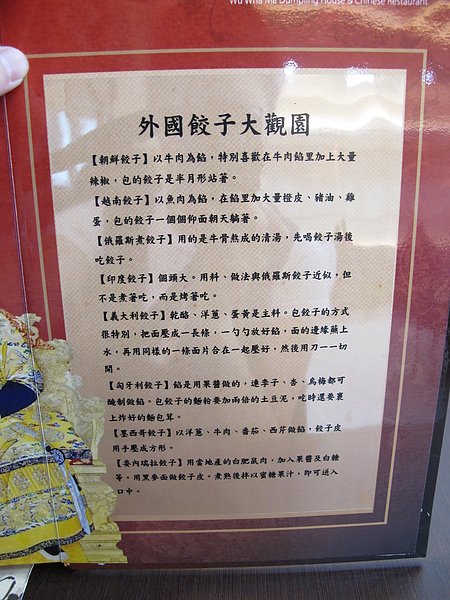 Wu Wha Ma Dumpling House & Chinese Restaurant
外國餃子大觀園
【朝鮮餃子】以牛肉為餡，特別喜歡在牛肉餡里加上大量
辣椒，包的餃子是半月形站著。
【越南餃子】以魚肉為餡，在餡里加大量橙皮、豬油、雞
蛋，包的餃子一個個仰面朝天躺著。
【俄羅斯煮餃子】用的是牛骨熬成的清湯，先喝餃子湯後
吃餃子。
【印度餃子】個頭大。用料、做法與俄羅斯餃子近似，但
不是煮著吃，而是烤著吃。
【義大利餃子】乾酪、洋蔥、蛋黃是主料。包餃子的方式
很特別，把面壓成一長條，一勺勺放好餡，面的邊緣蘸上
水，再用同樣的一條面片合在一起壓好，然後用刀一一切
開。
【匈牙利餃子】餡是用果醬做的，連李子、杏、烏梅都可
醃制做餡。包餃子的麵粉要加兩倍的土豆泥，吃時還要裹
上炸好的麵包茸。
【墨西哥餃子】以洋蔥、牛肉、番茄、西芹做餡，餃子皮
用手壓成方形。
【委內瑞拉餃子】用當地產的白肥鼠肉，加入果醬及白糖
等。用黑麥面做餃子皮。煮熟後拌以蜜糖果汁，即可送入
口中。